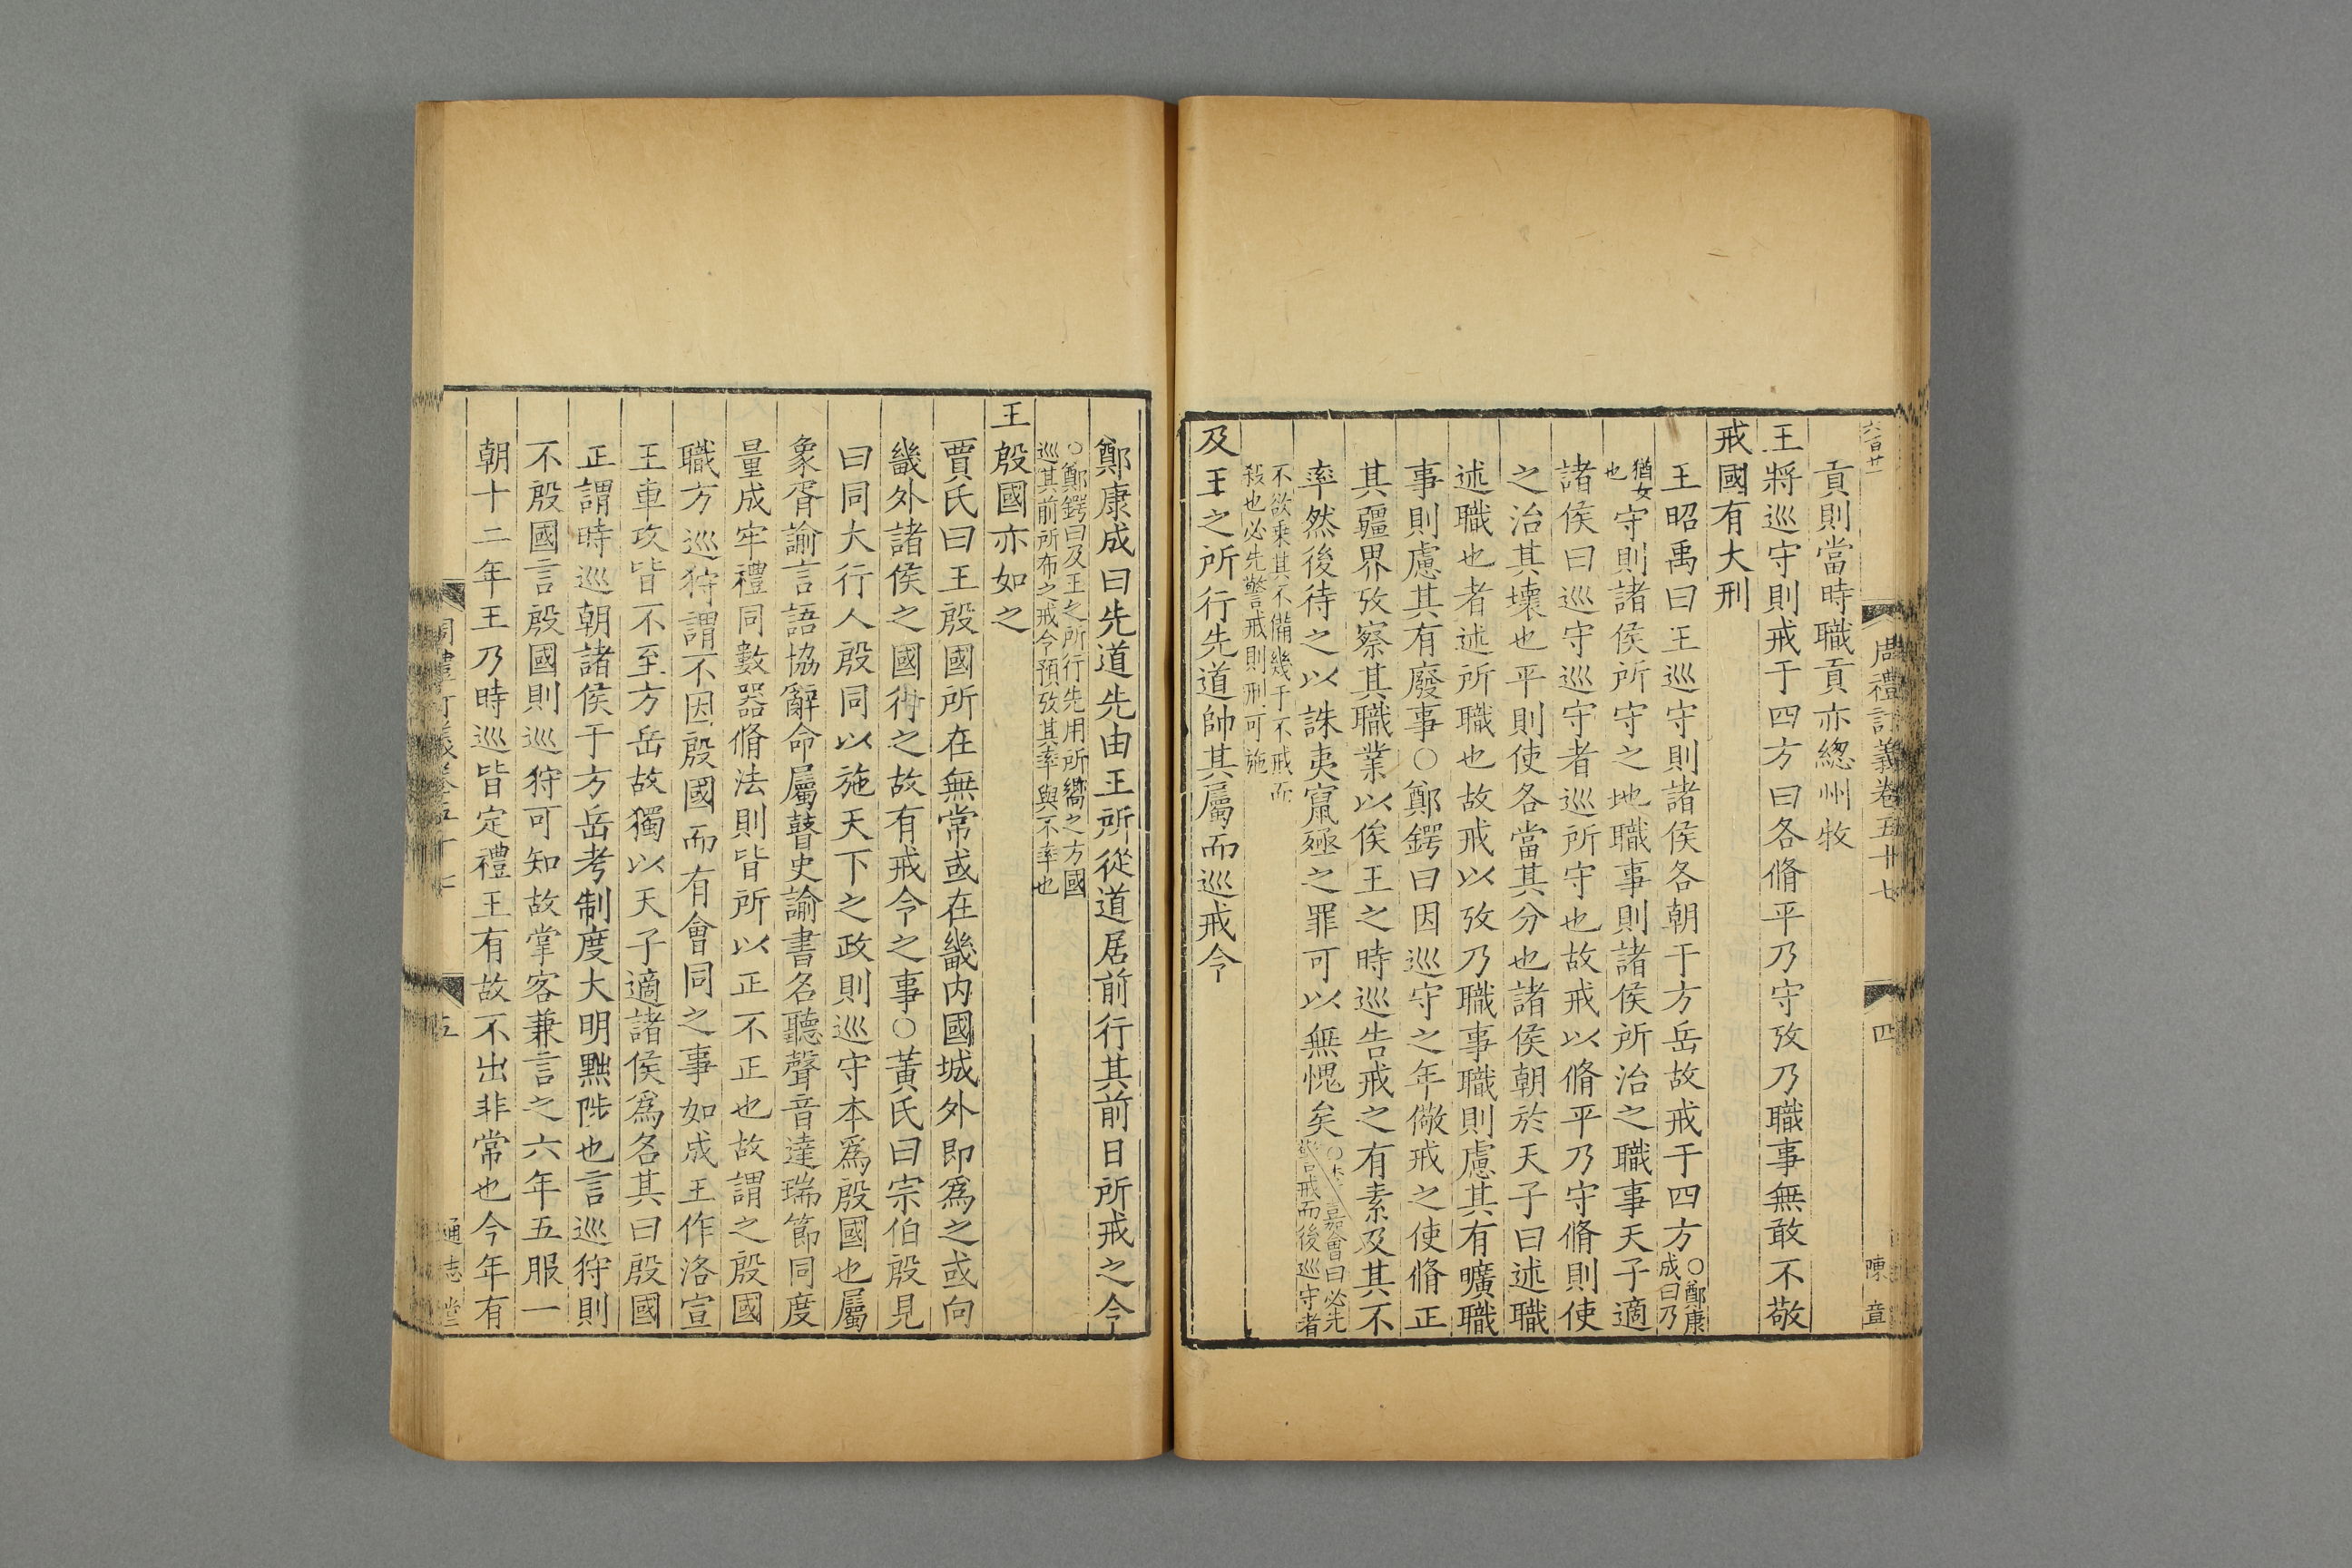 六百廿一
周禮訂義卷五十七
四
陳章
貢則當時職貢亦緫州牧
王將巡守則戒于四方曰各脩平乃守攷乃職事無敢不敬
戒國有大刑
王昭禹曰王巡守則諸侯各朝于方岳故戒于四方
○鄭康
成曰乃
猶女
也
守則諸侯所守之地職事則諸侯所治之職事天子適
諸侯曰巡守巡守者巡所守也故戒以脩平乃守脩則使
之治其壞也平則使各當其分也諸侯朝於天子曰述職
述職也者述所職也故戒以攷乃職事職則慮其有曠職
事則慮其有廢事○鄭鍔曰因巡守之年儆戒之使脩正
其疆界攷察其職業以俟王之時巡告戒之有素及其不
率然後待之以誅夷竄殛之罪可以無愧矣
嘉會曰必先
警戒而後巡守者
不欲乘其不備幾于不戒而
殺也必先警戒則刑可施
及王之所行先道帥其屬而巡戒令
鄭康成曰先道先由王所從道居前行其前日所戒之令
○鄭鍔曰及王之所行先用所嚮之方國
巡其前所布之戒令預攷其率與不率也
王殷國亦如之
賈氏曰王殷國所在無常或在畿内國城外即爲之或向
畿外諸侯之國行之故有戒令之事○黃氏曰宗伯殷見
曰同大行人殷同以施天下之政則巡守本爲殷國也屬
象胥諭言語協辭命屬瞽史諭書名聽聲音達瑞節同度
量成牢禮同數器脩法則皆所以正不正也故謂之殷國
職方巡狩謂不因殷國而有會同之事如成王作洛宣
王車攻皆不至方岳故獨以天子適諸侯爲名其曰殷國
正謂時巡朝諸侯于方岳考制度大明黜陟也言巡狩則
不殷國言殷國則巡狩可知故掌客兼言之六年五服一
朝十二年王乃時巡皆定禮王有故不出非常也今年有
周禮訂義卷五十七
五
通志堂